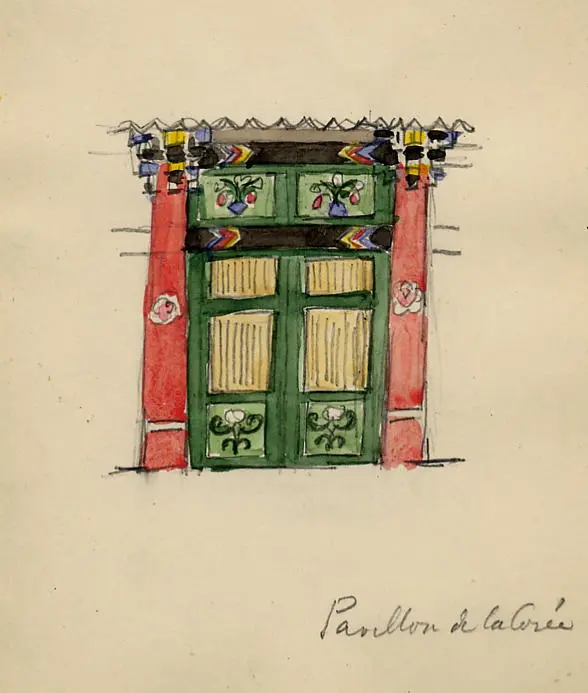 Pavillon de la Corée